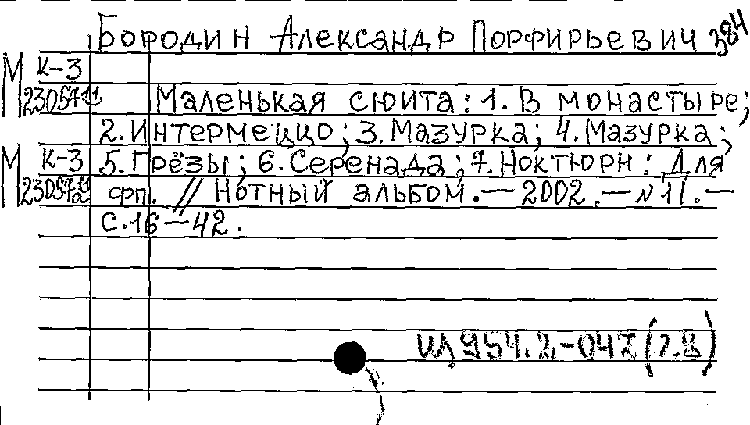 Бородин Александр Порфирьевич 384
М К-3
Маленькая сюита: 1. В монастыре;
2. Интермеццо; 3. Мазурка; 4. Мазурка;
М К-3 5. Грёзы; 6. Серенада; 7. Ноктюрн: Для
фп. // Нотный альбом. — 2002. — №11. —
С. 16 — 42.